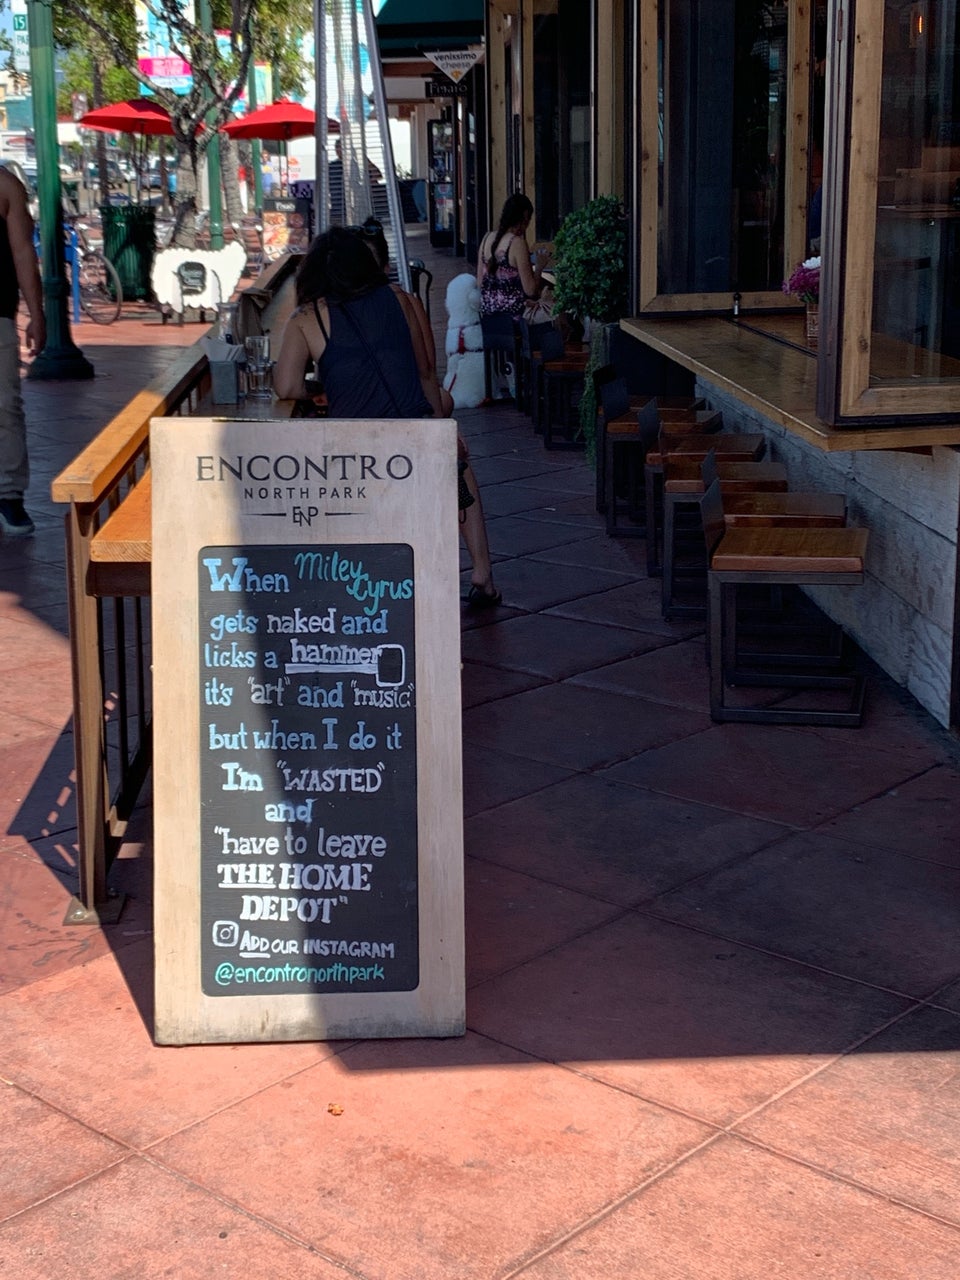 15
venissimo
cheese
ENCONTRO
NORTH PARK
ENP
When Miley Cyrus
gets naked and
licks a hammer
it's "art" and "music"
but when I do it
I'm "WASTED"
and
"have to leave
THE HOME
DEPOT"
ADD OUR INSTAGRAM
@encontronorthpark